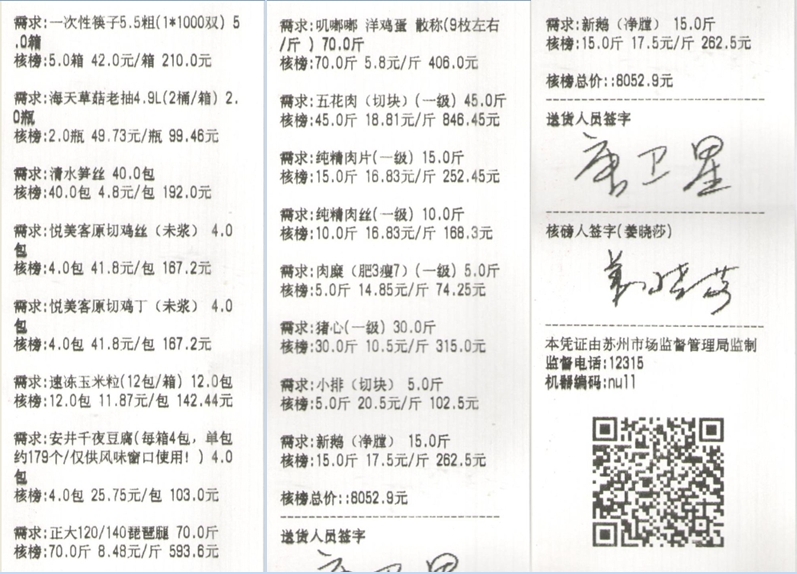 需求:一次性筷子5.5粗(1*1000双) 5
.0箱
核榜:5.0箱 42.0元/箱 210.0元
需求:海天草菇老抽4.9L(2桶/箱) 2.
0瓶
核榜:2.0瓶 49.73元/瓶 99.46元
需求:清水笋丝 40.0包
核榜:40.0包 4.8元/包 192.0元
需求:悦美客原切鸡丝（未浆） 4.0
包
核榜:4.0包 41.8元/包 167.2元
需求:悦美客原切鸡丁（未浆） 4.0
包
核榜:4.0包 41.8元/包 167.2元
需求:速冻玉米粒(12包/箱) 12.0包
核榜:12.0包 11.87元/包 142.44元
需求:安井千夜豆腐(每箱4包，单包
约179个/仅供风味窗口使用！) 4.0
包
核榜:4.0包 25.75元/包 103.0元
需求:正大120/140琵琶腿 70.0斤
核榜:70.0斤 8.48元/斤 593.6元
需求:叽嘟嘟 洋鸡蛋 散称(9枚左右
/斤 ) 70.0斤
核榜:70.0斤 5.8元/斤 406.0元
需求:五花肉（切块）(一级) 45.0斤
核榜:45.0斤 18.81元/斤 846.45元
需求:纯精肉片(一级) 15.0斤
核榜:15.0斤 16.83元/斤 252.45元
需求:纯精肉丝(一级) 10.0斤
核榜:10.0斤 16.83元/斤 168.3元
需求:肉糜（肥3瘦7）(一级) 5.0斤
核榜:5.0斤 14.85元/斤 74.25元
需求:猪心(一级) 30.0斤
核榜:30.0斤 10.5元/斤 315.0元
需求:小排（切块） 5.0斤
核榜:5.0斤 20.5元/斤 102.5元
需求:新鹅（净膛） 15.0斤
核榜:15.0斤 17.5元/斤 262.5元
核榜总价::8052.9元
送货人员签字
唐卫星
需求:新鹅（净膛） 15.0斤
核榜:15.0斤 17.5元/斤 262.5元
核榜总价::8052.9元
送货人员签字
唐卫星
核磅人签字(姜晓莎)
姜晓莎
本凭证由苏州市场监督管理局监制
监督电话:12315
机器编码:null